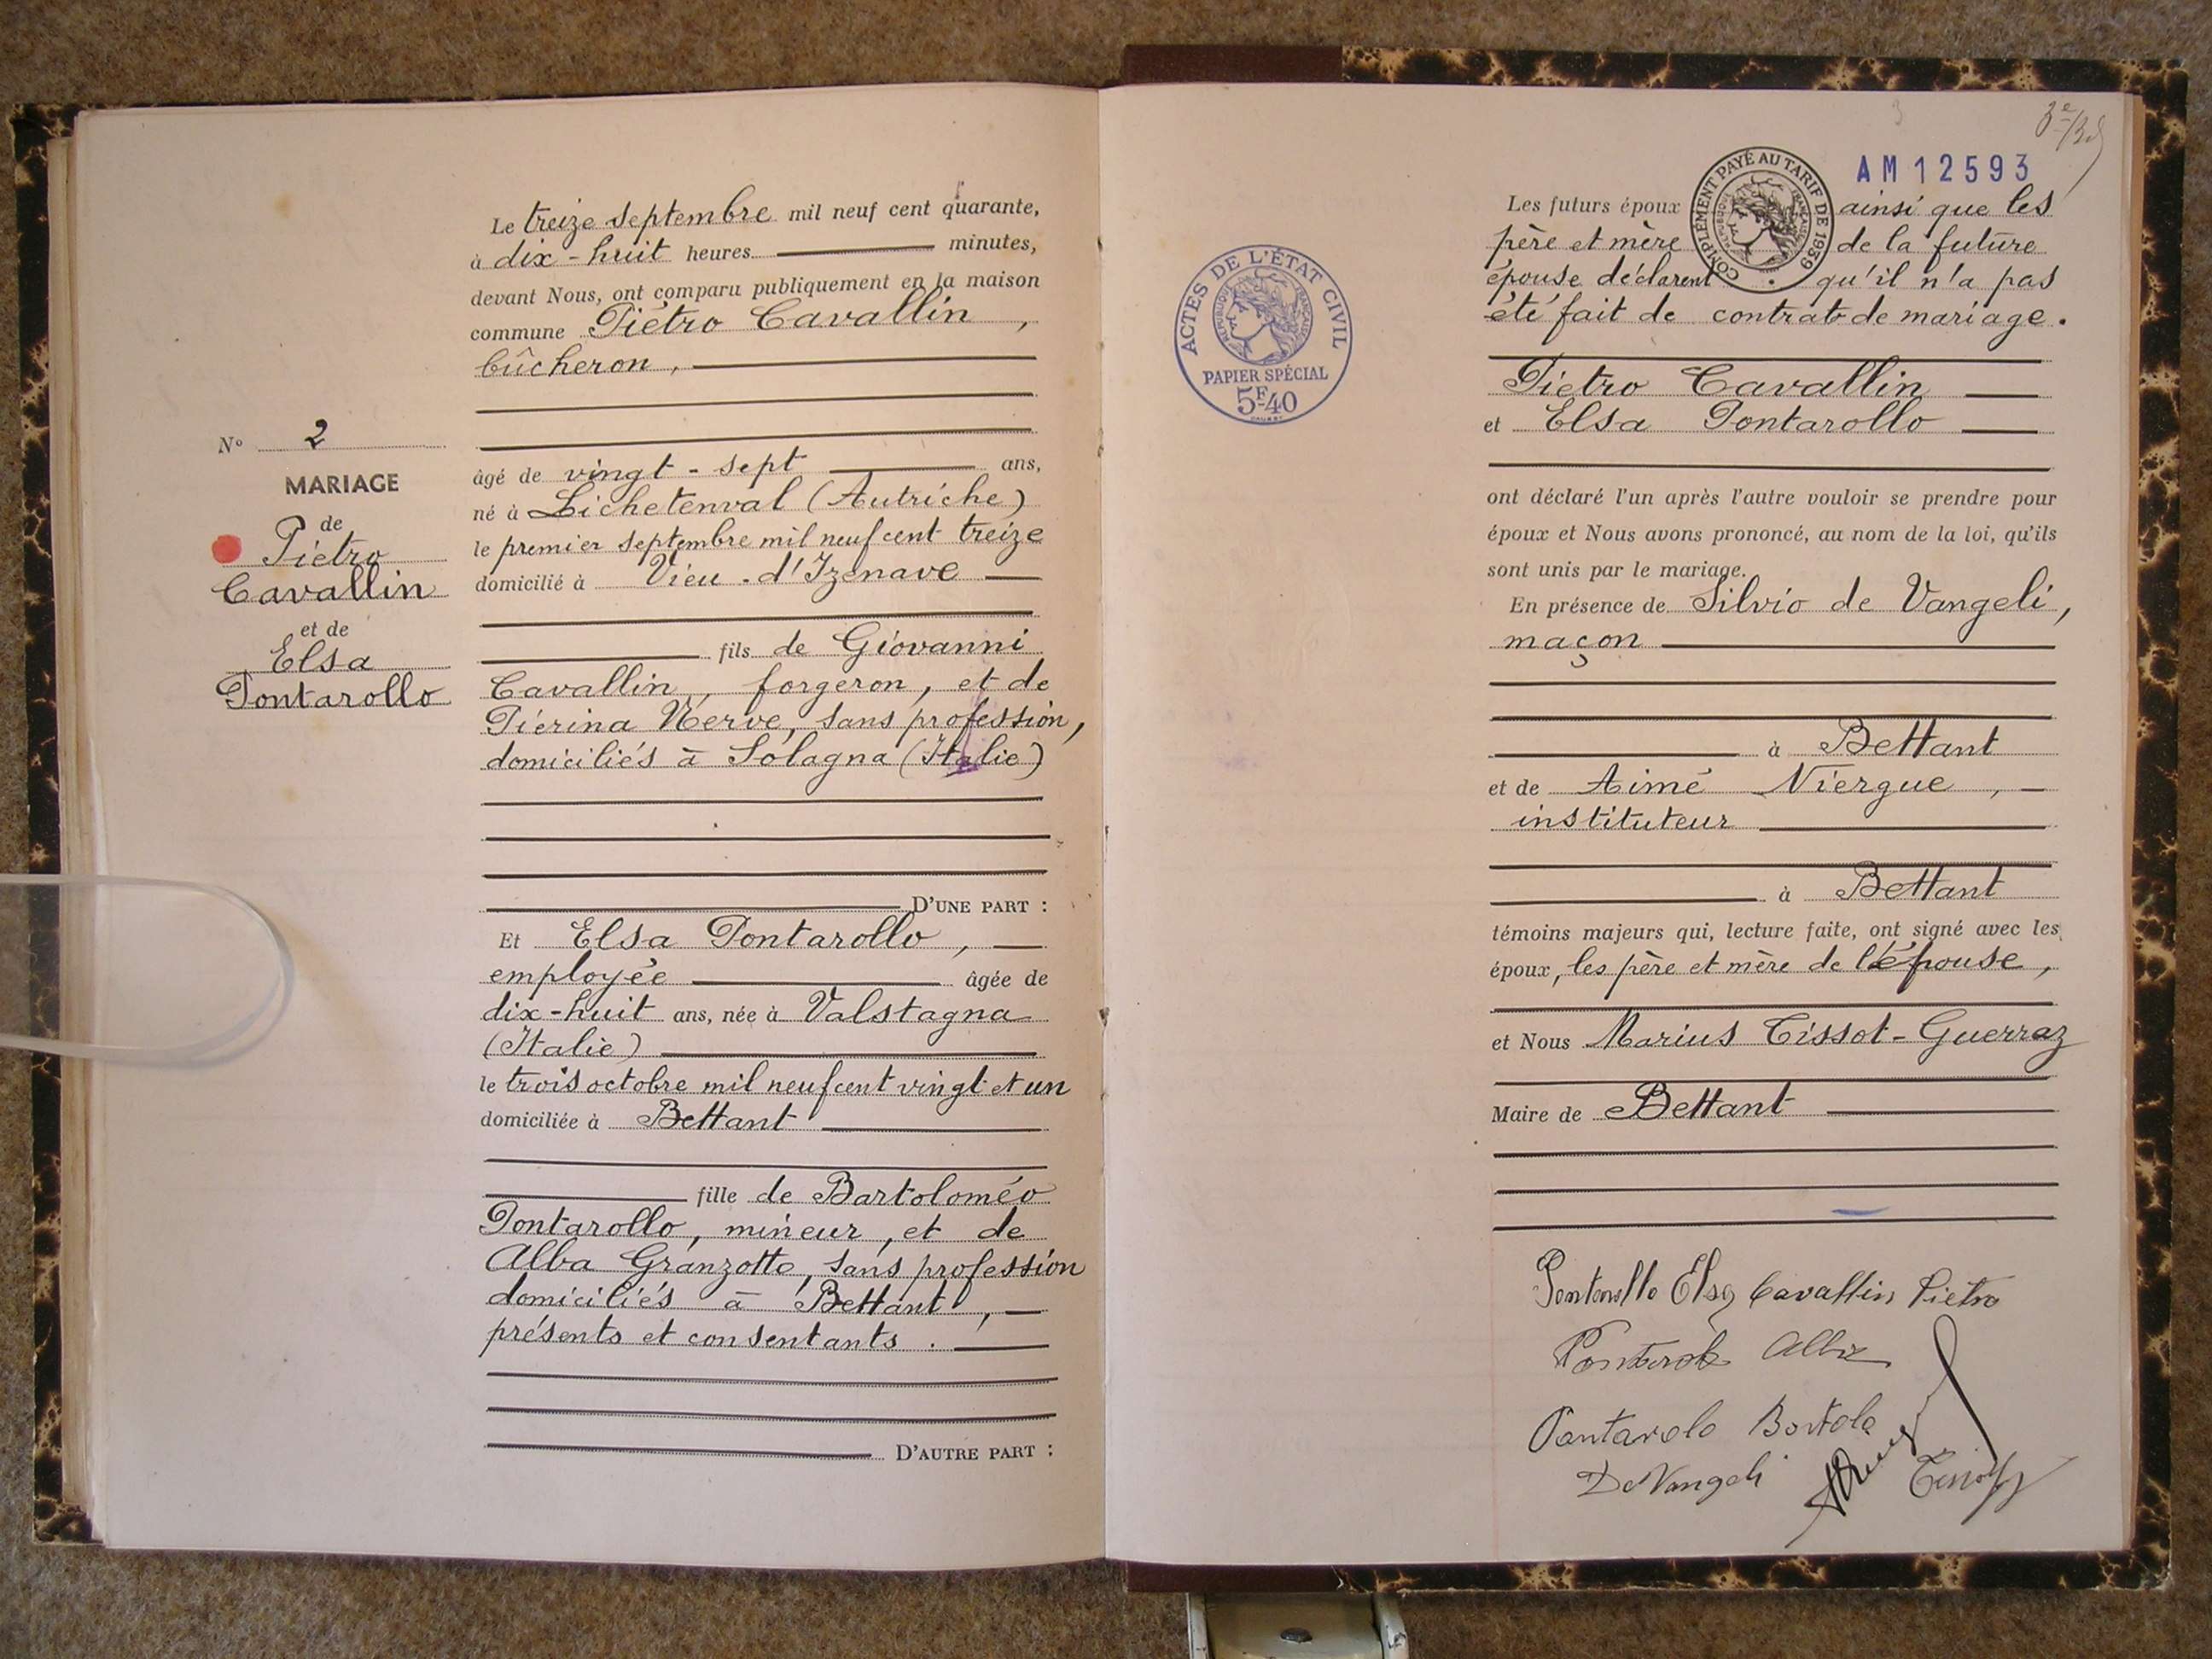 N° 2
MARIAGE
de
Piétro
Cavallin
et de
Elsa
Pontarollo
Le treize septembre mil neuf cent quarante,
à dix-huit heures minutes,
devant Nous, ont comparu publiquement en la maison
commune Piétro Cavallin,
bûcheron,
âgé de vingt-sept ans,
né à Lichetenval (Autriche)
le premier septembre mil neuf cent treize
domicilié à Vieu-d'Izenave
fils de Giovanni
Cavallin, forgeron, et de
Piérina Nervé, sans profession,
domiciliés à Solagna (Italie)
D'UNE PART :
Et Elsa Pontarollo,
employée âgée de
dix-huit ans, née à Valstagna
(Italie)
le trois octobre mil neuf cent vingt et un
domiciliée à Bettant
fille de Bartoloméo
Pontarollo, mineur, et de
Alba Granzotto, sans profession
domiciliés à Bettant,
présents et consentants.
D'AUTRE PART :
AM12593
COMPLÉMENT PAYÉ AU TARIF DE 1939
RÉPUBLIQUE FRANÇAISE
ACTES DE L'ÉTAT CIVIL
RÉPUBLIQUE FRANÇAISE
PAPIER SPÉCIAL
5F40
Les futurs époux ainsi que les
père et mère de la future
épouse déclarent qu'il n'a pas
été fait de contrat de mariage.
Piétro Cavallin
et Elsa Pontarollo
ont déclaré l'un après l'autre vouloir se prendre pour
époux et Nous avons prononcé, au nom de la loi, qu'ils
sont unis par le mariage.
En présence de Silvio de Vangeli,
maçon
à Bettant
et de Aimé Niergue,
instituteur
à Bettant
témoins majeurs qui, lecture faite, ont signé avec les
époux, les père et mère de l'épouse,
et Nous Marius Tissot-Guerraz
Maire de Bettant
Pontarollo Elsa Cavallin Pietro
Alba
Pontarolo Bortolo
De Vangeli